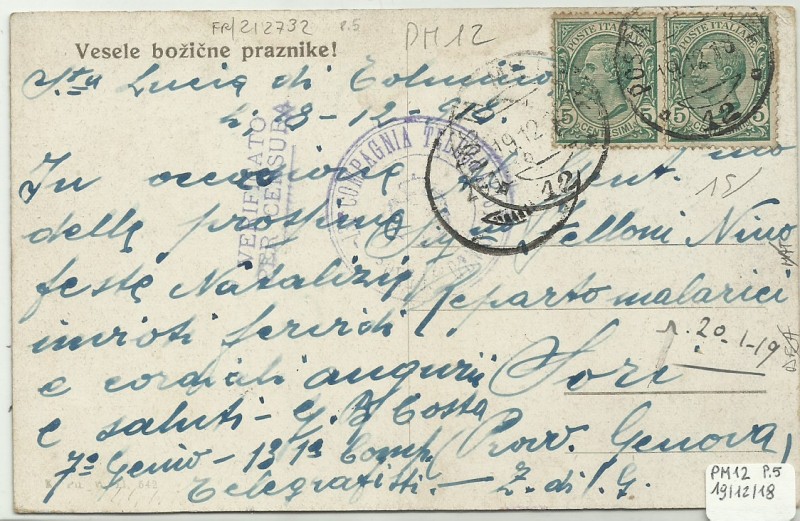 FR/212732 P.5
PM12
Vesele božične praznike!
Sta Lucia di Tolmino
li, 18-12-918.
In occasione
delle prossime
feste Natalizie
invioti fervidi
e cordiali auguri
e saluti - G. B. Costa
7º Genio - 131ª Comp.
Telegrafisti. - Z. di G.
VERIFICATO
PER CENSURA
COMPAGNIA
POSTE ITALIANE
5 CENTESIMI 5
POSTE ITALIANE
5 CENTESIMI 5
19.12
12
19.12.18
12
Gent.
Sigr. Velloni Nino
Reparto malarici
Sori
Prov. Genova,
15/
r. 20-1-19
PM12 P.5
19/12/18